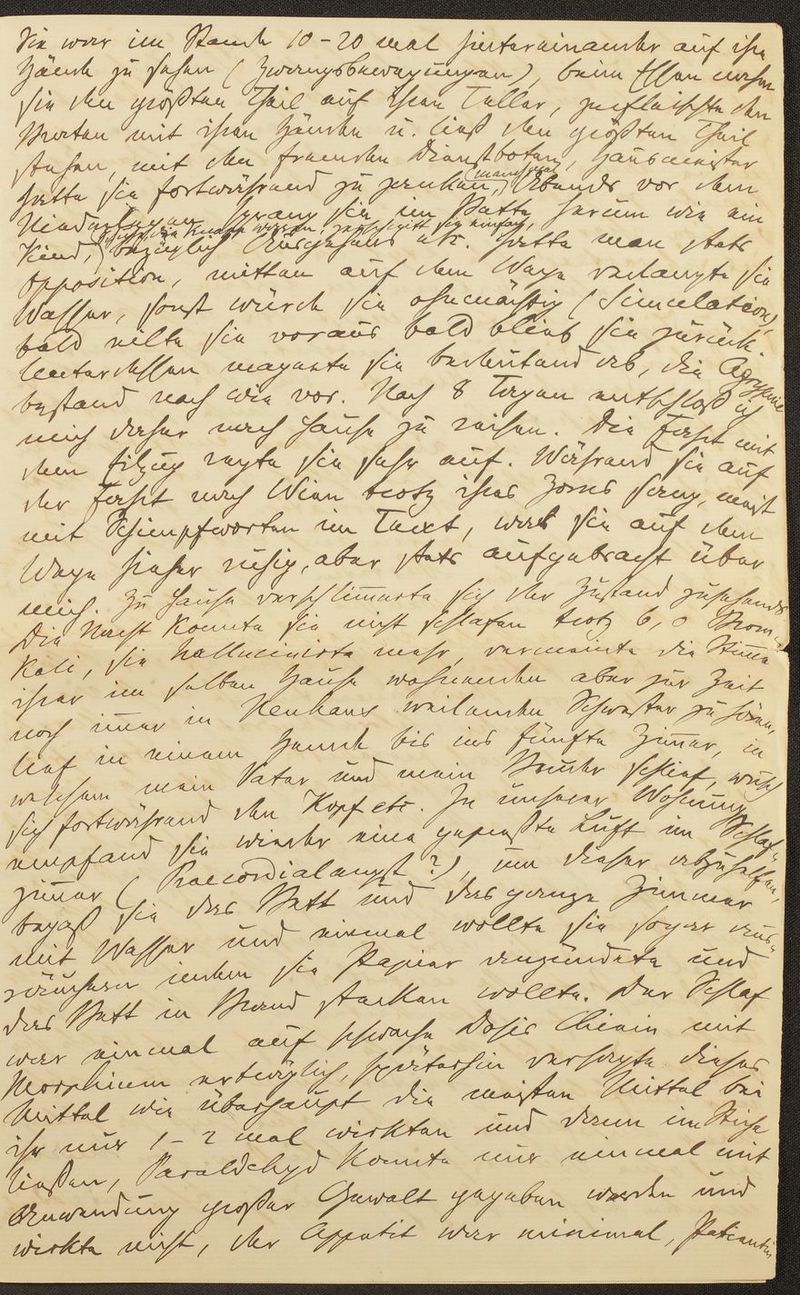 Sie war im Stande 10-20 mal hintereinander auf ihre
Hände zu sehen (Zwangsbewegungen), beim Essen nahm
sie den größten Theil auf ihren Teller, zerfleischte den
Braten mit ihren Händen u. ließ den größten Theil
stehen, mit den fremden Dienstboten, Hausmeister
hatte sie fortwährend zu zanken, manchmal Abends vor dem
Niederlegen sprang sie im Bette herum wie ein
Kind, bezüglich Ausgehens etc. hatte man stets
Opposition, mitten auf dem Wege verlangte sie
Wasser, sonst würde sie ohnmächtig (Simulation),
bald eilte sie voraus bald blieb sie zurück.
Unterdessen magerte sie bedeutend ab, die Agrypnie
bestand nach wie vor. Nach 8 Tagen entschloß ich
mich daher nach Hause zu reisen. Die Fahrt mit
dem Eilzug regte sie sehr auf. Während sie auf
der Fahrt nach Wien trotz ihres Zornes sang, meist
mit Schimpfworten im Text, war sie auf dem
Wege hieher ruhig, aber stets aufgebracht über
mich. Zu Hause verschlimmerte sich der Zustand zusehends
Die Nacht konnte sie nicht schlafen trotz 6,0 Brom-
Kali, sie hallucinirte mehr, vermeinte die Stimme
ihrer im selben Hause wohnenden aber zur Zeit
noch immer in Neuhaus weilenden Schwester zu hören,
lief in einem Hemde bis ins fünfte Zimmer, in
welchem mein Vater und mein Bruder schlief, wusch
sich fortwährend den Kopf etc. In unserer Wohnung
empfand sie wieder eine gepreßte Luft im Schlaf-
zimmer (Praecordialangst?), um dieser abzuhelfen,
begoß sie das Bett und das ganze Zimmer
mit Wasser und einmal wollte sie sogar aus-
räuchern indem sie Papier anzündete und
das Bett in Brand stecken wollte. Der Schlaf
war einmal auf schwache Dosis Chinin mit
Morphium erträglich, späterhin versagte dieses
Mittel wie überhaupt die meisten Mittel bei
ihr nur 1-2 mal wirkten und dann im Stiche
ließen, Paraldehyd konnte nur einmal mit
Anwendung großer Gewalt gegeben werden und
wirkte nicht, der Appetit war minimal, Patientin